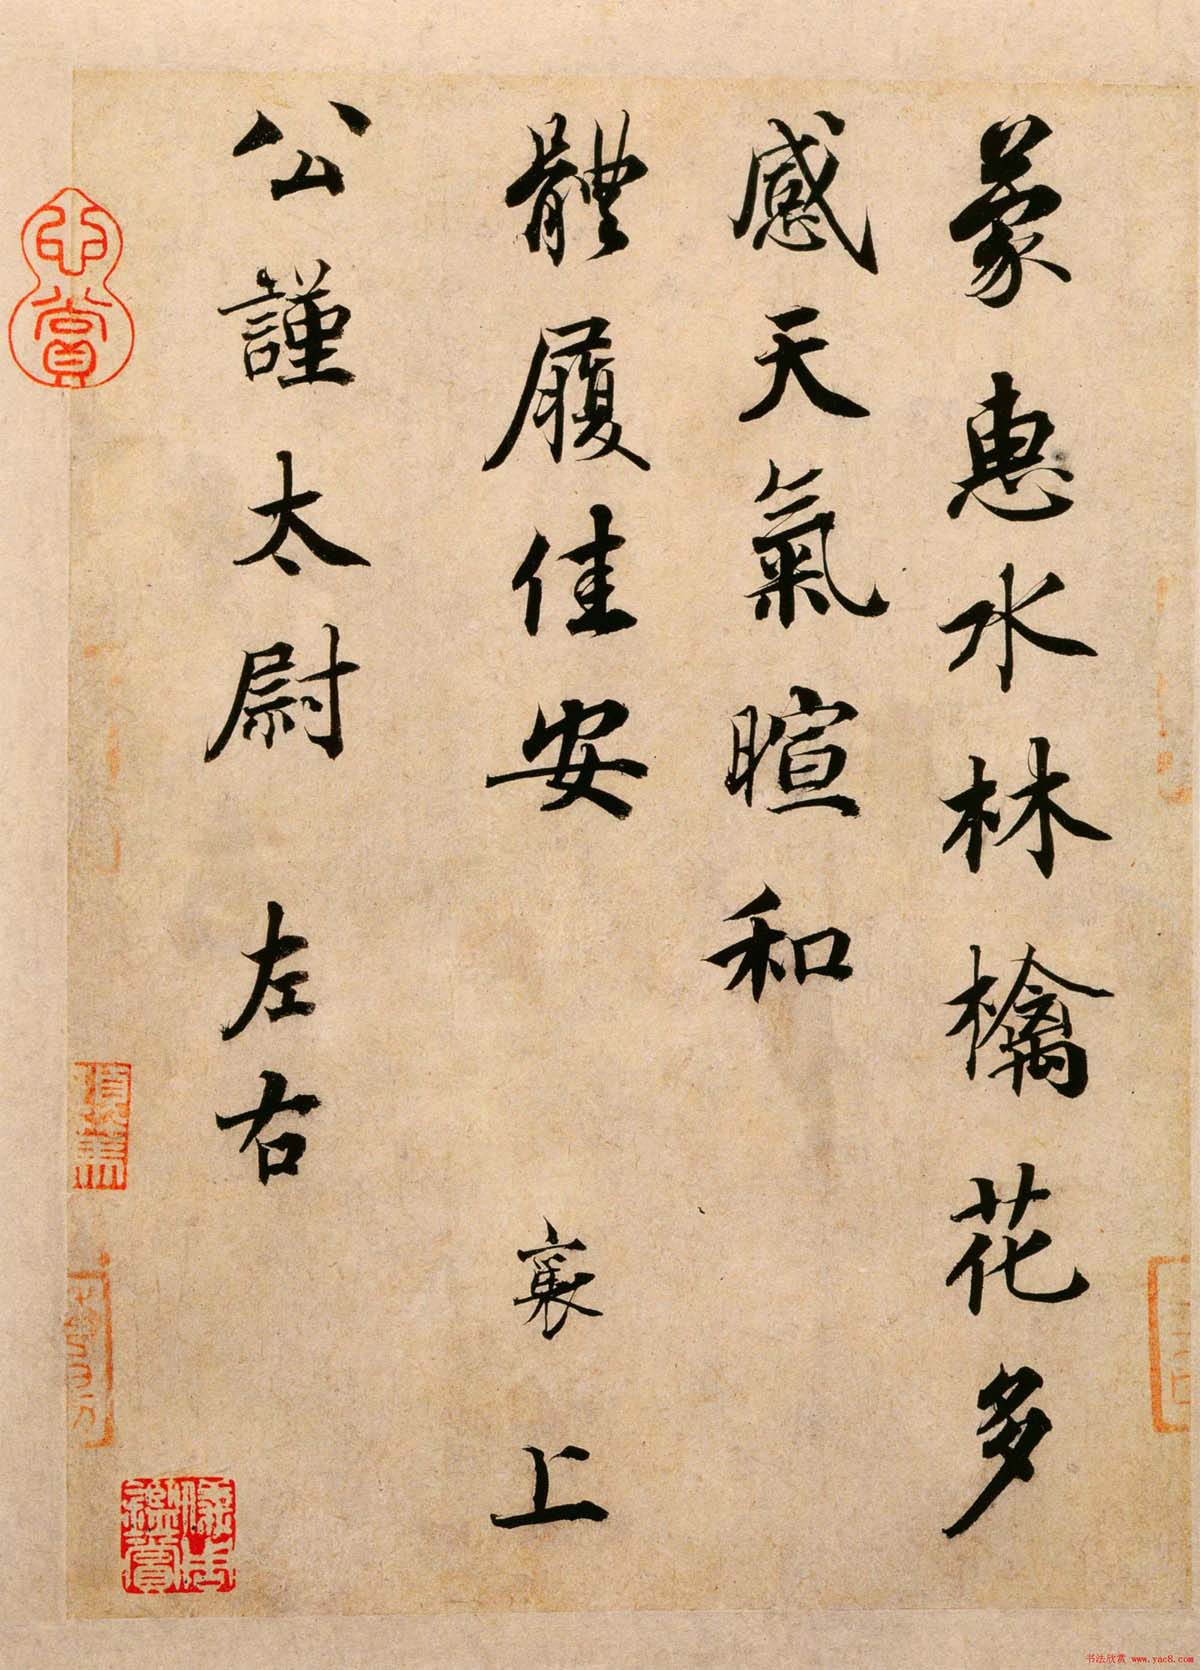 蒙惠水林檎花多
感天氣暄和
體履佳安 襄上
公謹太尉 左右
心賞
儀周鑑賞
书法欣赏 www.yac8.com